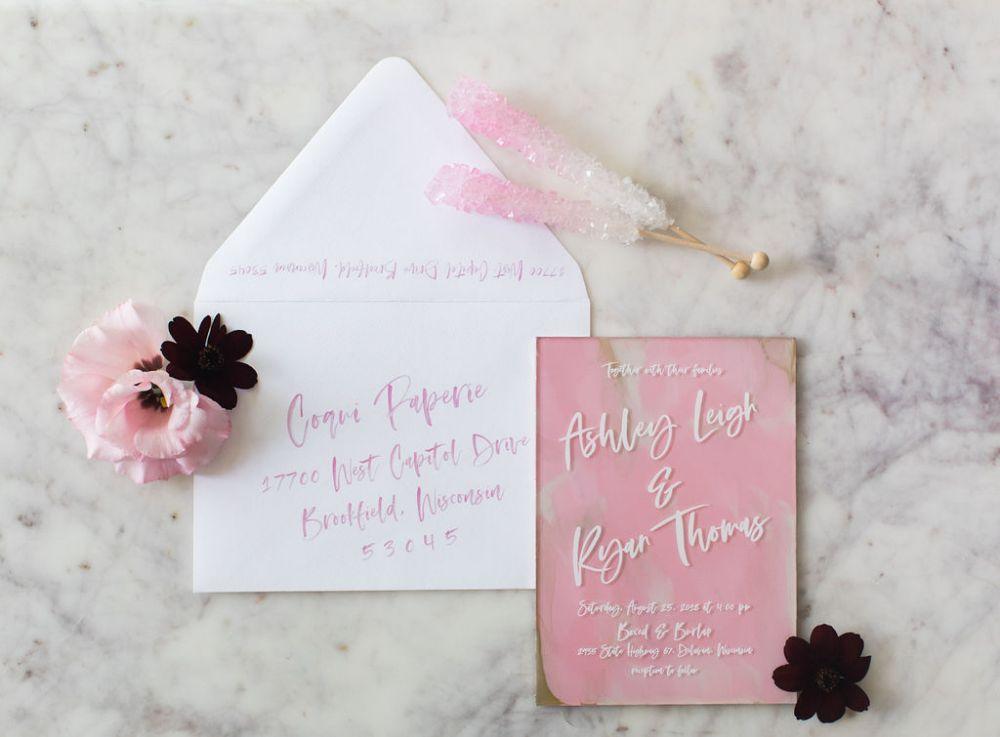 17700 West Capitol Drive Brookfield, Wisconsin 53045
Coqui Paperie
17700 West Capitol Drive
Brookfield, Wisconsin
53045
Together with their families
Ashley Leigh
&
Ryan Thomas
Saturday, August 25, 2018 at 4:00 pm
Boxed & Burlap
2935 State Highway 67, Delavan, Wisconsin
reception to follow